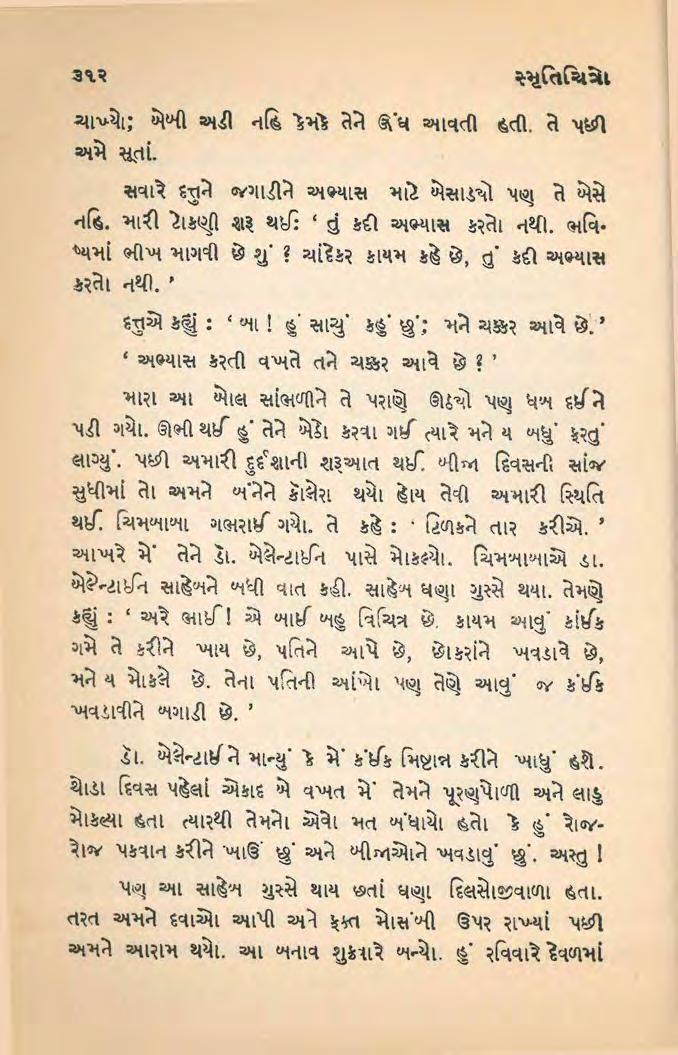 ૩૧૨ સ્મૃતિચિત્રો
ચાખ્યો; બેબી અડી નહિ કેમકે તેને ઊંઘ આવતી હતી. તે પછી
અમે સૂતાં.
સવારે દત્તુને જગાડીને અભ્યાસ માટે બેસાડ્યો પણ તે બેસે
નહિ. મારી ટોકણી શરૂ થઈ: ‘ તું કદી અભ્યાસ કરતો નથી. ભવિ-
ષ્યમાં ભીખ માગવી છે શું ? ચાંદેકર કાયમ કહે છે, તું કદી અભ્યાસ
કરતો નથી. ’
દત્તુએ કહ્યું : ‘ બા ! હું સાચું કહું છું; મને ચક્કર આવે છે.’
‘ અભ્યાસ કરતી વખતે તને ચક્કર આવે છે ? ’
મારા આ બોલ સાંભળીને તે પરાણે ઊઠ્યો પણ ધબ દઈને
પડી ગયો. ઊભી થઈ હું તેને બેઠો કરવા ગઈ ત્યારે મને ય બધું ફરતું
લાગ્યું. પછી અમારી દુર્દશાની શરૂઆત થઈ. બીજા દિવસની સાંજ
સુધીમાં તો અમને બંનેને કૉલેરા થયો હોય તેવી અમારી સ્થિતિ
થઈ. ચિમબાબા ગભરાઈ ગયો. તે કહે : ‘ ટિળકને તાર કરીએ. ’
આખરે મેં તેને ડૉ. બેલેન્ટાઈન પાસે મોકલ્યો. ચિમબાબાએ ડા.
બેલેન્ટાઈન સાહેબને બધી વાત કહી. સાહેબ ઘણા ગુસ્સે થયા. તેમણે
કહ્યું : ‘ અરે ભાઈ ! એ બાઈ બહુ વિચિત્ર છે. કાયમ આવું કાંઈક
ગમે તે કરીને ખાય છે, પતિને આપે છે, છોકરાંને ખવડાવે છે,
મને ય મોકલે છે. તેના પતિની આંખો પણ તેણે આવું જ કંઈક
ખવડાવીને બગાડી છે. ’
ડૉ. બેલેન્ટાઈને માન્યું કે મેં કંઈક મિષ્ટાન્ન કરીને ખાધું હશે.
થોડા દિવસ પહેલાં એકાદ બે વખત મેં તેમને પૂરણપોળી અને લાડુ
મોકલ્યા હતા ત્યારથી તેમનો એવો મત બંધાયો હતો કે હું રોજ-
રોજ પકવાન કરીને ખાઉં છું અને બીજાઓને ખવડાવું છું. અસ્તુ !
પણ આ સાહેબ ગુસ્સે થાય છતાં ઘણા દિલસોજીવાળા હતા.
તરત અમને દવાઓ આપી અને ફક્ત મોસંબી ઉપર રાખ્યાં પછી
અમને આરામ થયો. આ બનાવ શુક્રવારે બન્યો. હું રવિવારે દેવળમાં